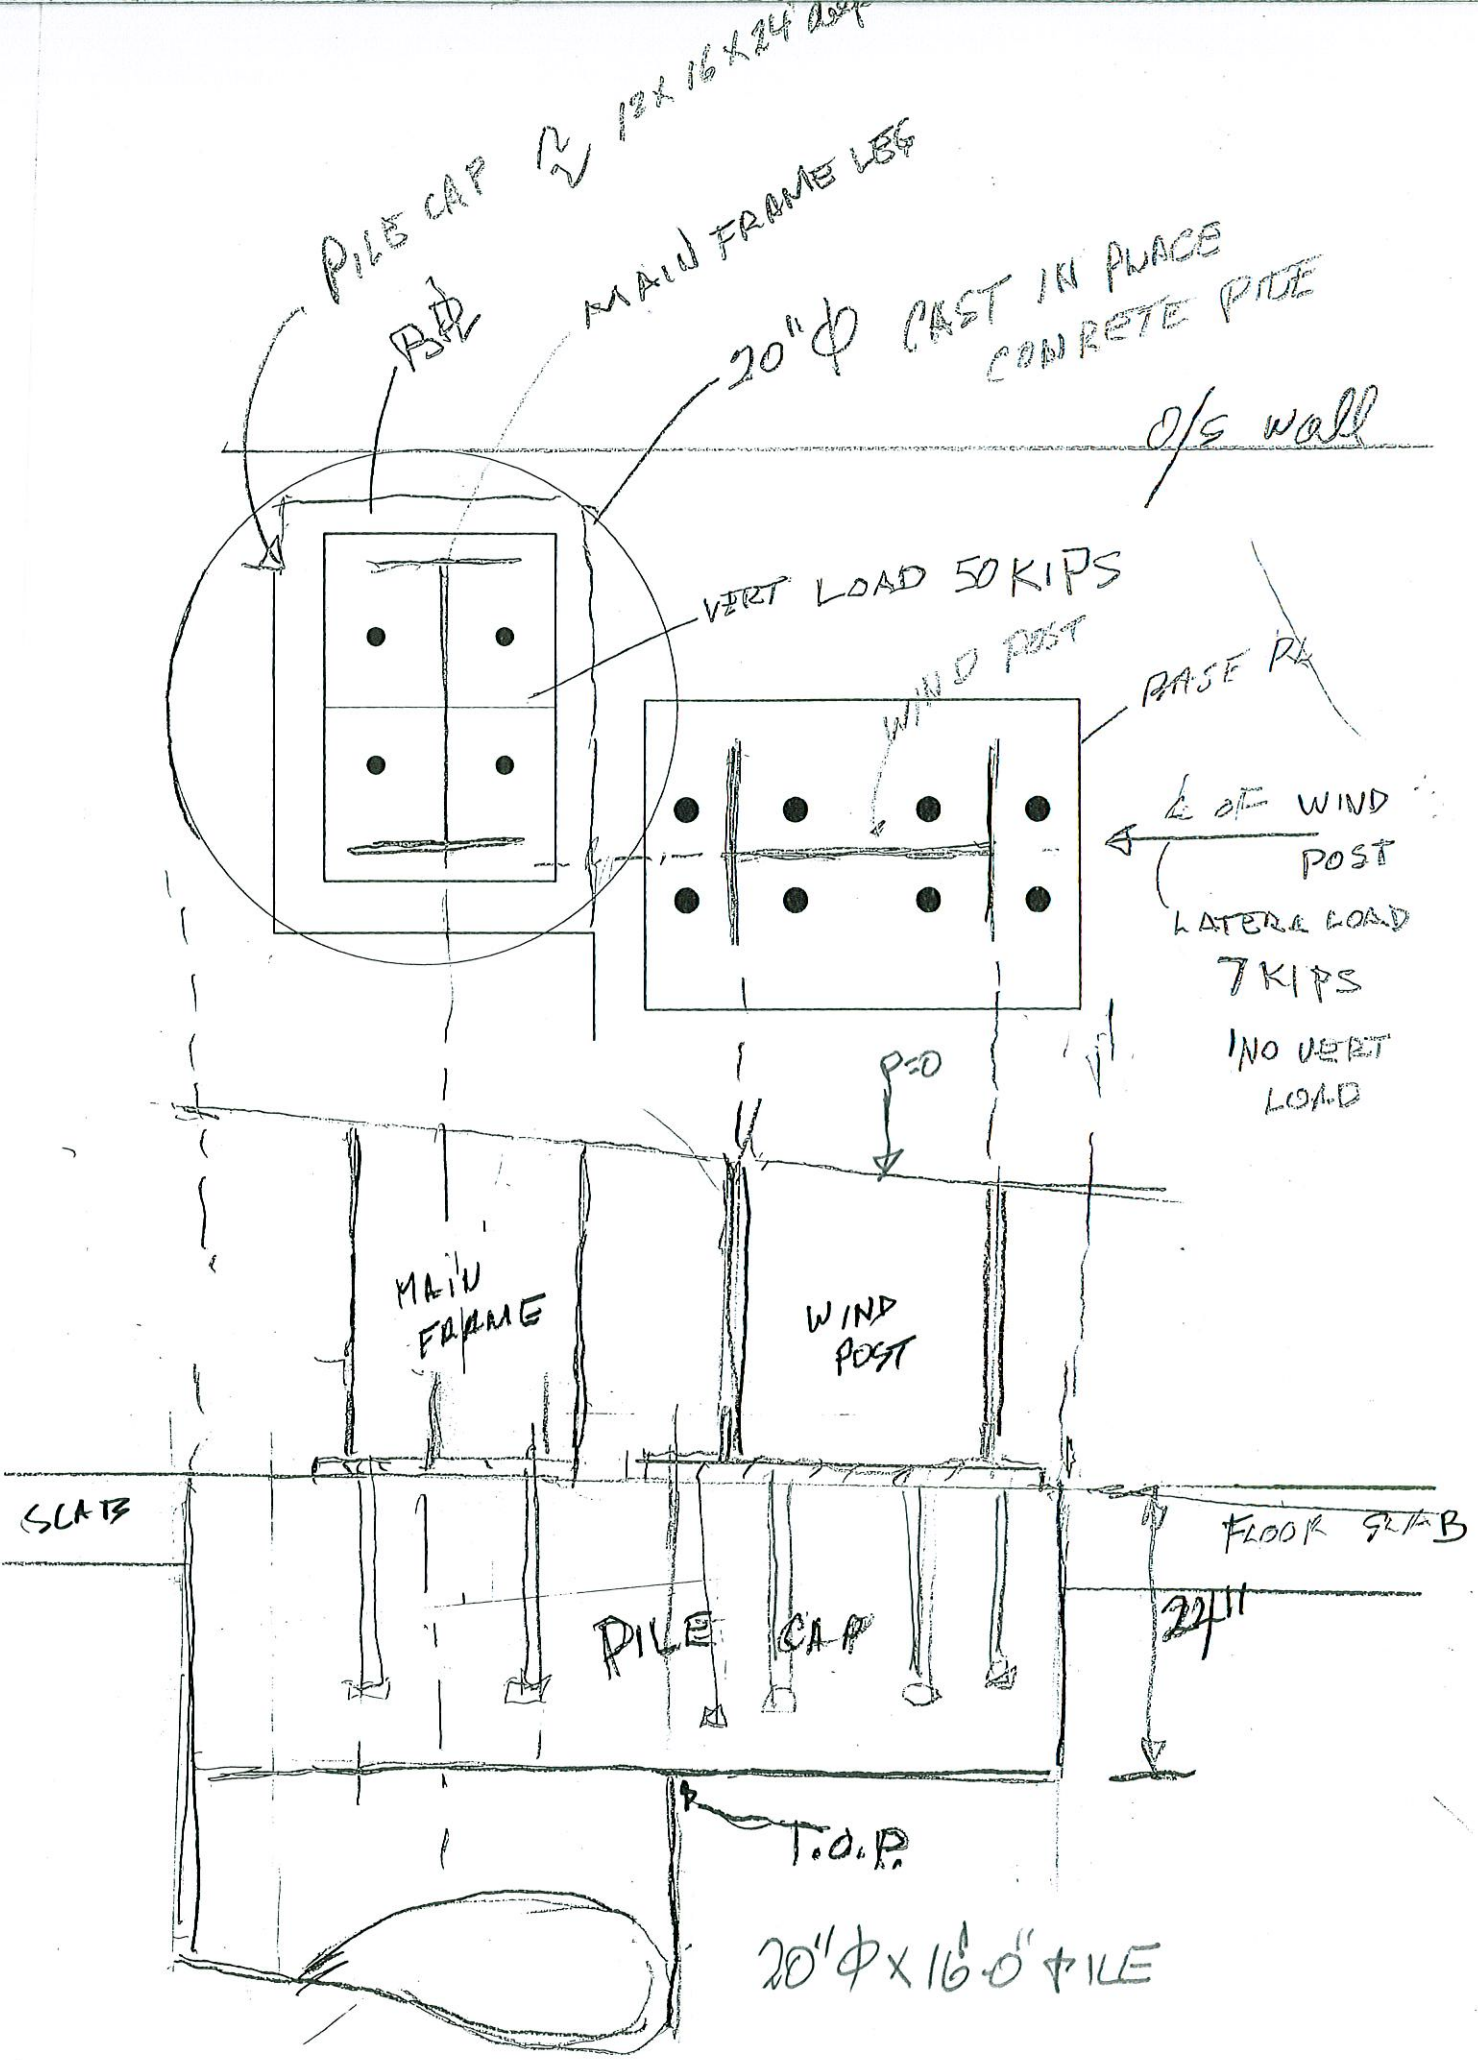 PILE CAP ≈ 12 x 16 x 24" deep
MAIN FRAME LEG
B PL
20"Φ CAST IN PLACE
CONRETE PILE
O/S wall
VERT LOAD 50 KIPS
WIND POST
BASE PL
℄ OF WIND
POST
LATERAL LOAD
7 KIPS
NO VERT
LOAD
P=0
MAIN
FRAME
WIND
POST
SLAB
FLOOR SLAB
PILE CAP
24"
T.O.P.
20"Φ X 16'-0" PILE